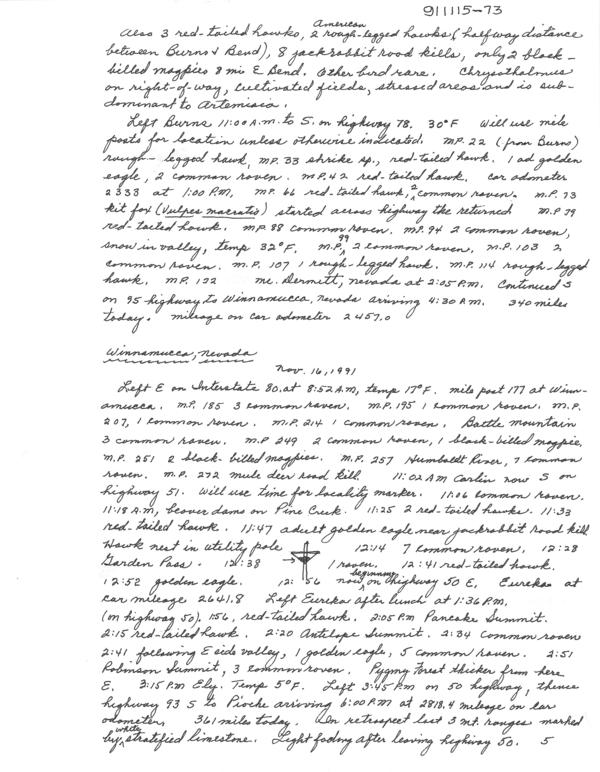 911115-73
Also 3 red-tailed hawks, 2 American rough-legged hawks (halfway distance
between Burns & Bend), 8 jackrabbit road kills, only 2 black-
billed magpies 8 mi E Bend. Other bird rare. Chrysothalmus
on right-of-way, cultivated fields, stressed areas and is sub-
dominant to Artemisia.
Left Burns 11:00 A.M. to S. on highway 78. 30°F Will use mile
posts for location unless otherwise indicated. M.P. 22 (from Burns)
rough-legged hawk, M.P. 33 shrike sp., red-tailed hawk. 1 ad golden
eagle, 2 common raven. M.P. 42 red-tailed hawk. car odometer
2333 at 1:00 P.M. M.P. 66 red-tailed hawk, 2 common raven. M.P. 73
kit fox (Vulpes macrotis) started across highway the returned M.P 79
red-tailed hawk. M.P 88 common raven. M.P. 94 2 common raven,
snow in valley, temp 32°F. M.P. 99 2 common raven, M.P. 103 2
common raven. M.P. 107 1 rough-legged hawk. M.P. 114 rough-legged
hawk. M.P. 122 Mc. Dermitt, Nevada at 2:05 P.M. Continued S
on 95 highway to Winnamucca, Nevada arriving 4:30 A.M. 340 miles
today. mileage on car odometer 2457.0
Winnamucca, Nevada
Nov. 16, 1991
Left E on Interstate 80. at 8:52 A.M, temp 17°F. mile post 177 at Winn-
amucca. M.P. 185 3 common raven. M.P. 195 1 common raven. M.P.
207, 1 common raven. M.P. 214 1 common raven. Battle Mountain
3 common raven. M.P 249 2 common raven, 1 black-billed magpie.
M.P. 251 2 black-billed magpies. M.P. 257 Humboldt River, 7 common
raven. M.P. 272 mule deer road kill. 11:02 AM Carlin now S on
highway 51. Will use time for locality marker. 11:06 common raven.
11:18 A.M, beaver dams on Pine Creek. 11:25 2 red-tailed hawks. 11:33
red-tailed hawk. 11:47 adult golden eagle near jackrabbit road kill
Hawk nest in utility pole 12:14 7 common raven. 12:28
Garden Pass. 12:38 1 raven. 12:41 red-tailed hawk.
12:52 golden eagle. 12:56 now beginning on highway 50 E, Eureka at
car mileage 2641.8 Left Eureka after lunch at 1:36 P.M.
(on highway 50). 1:56, red-tailed hawk. 2:05 P.M Pancake Summit.
2:15 red-tailed hawk. 2:20 Antilope Summit. 2:34 common raven
2:41 following E side valley, 1 golden eagle, 5 common raven. 2:51
Robinson Summit, 3 common raven. Pygmy Forest thicker from here
E. 3:15 P.M Ely. Temp 5°F. Left 3:45 P.M on 50 highway, thence
highway 93 S to Pioche arriving 6:00 P.M at 2818.4 mileage on car
odometer. 361 miles today. In retrospect last 3 mt. ranges marked
by white stratified limestone. Light fading after leaving highway 50. 5